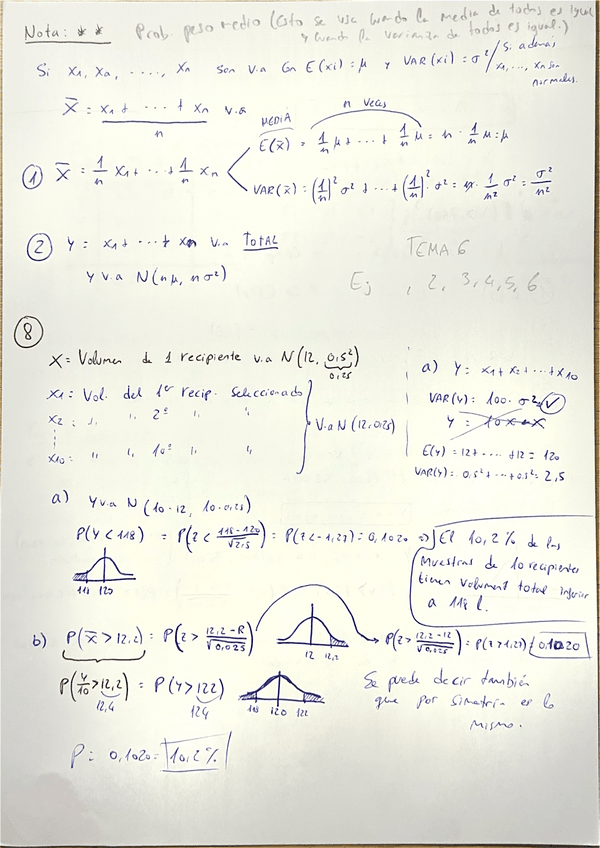 Nota: * * Prob. peso medio (Esto se usa cuando la media de todos es igual
y cuando la varianza de todos es igual.)
Si x1, x2, ....., xn son v.a con E(xi) = μ y VAR(xi) = σ² / Si además
x1, ..., xn son
normales.
X̄ = x1 + ... + xn / n v.a
① X̄ = 1/n x1 + ... + 1/n xn
MEDIA n veces
E(x̄) = 1/n μ + ... + 1/n μ = n · 1/n μ = μ
VAR(x̄) = (1/n)² σ² + ... + (1/n)² · σ² = n · 1/n² σ² = σ²/n²
② Y = x1 + ... + xn v.a TOTAL
Y v.a N(nμ, nσ²)
TEMA 6
Ej , 2, 3, 4, 5, 6
⑧
X = Volumen de 1 recipiente v.a N(12, 0,5²)
0,25
x1 = Vol. del 1er recip. seleccionado
x2 = " " 2º " "
x10 = " " 10º " "
v.a N(12, 0,25)
a) Y = x1 + x2 + ... + x10
VAR(Y) = 100 · σ² ✓
Y = 10X
E(Y) = 12 + ..... + 12 = 120
VAR(Y) = 0,5² + ... + 0,5² = 2,5
a) Y v.a N(10·12, 10·0,25)
P(Y < 118) = P(Z < 118-120/√2,5) = P(Z < -1,27) = 0,1020 ⇒
118 120
El 10,2% de las
muestras de 10 recipientes
tienen volument total inferior
a 118 l.
b) P(X̄ > 12,2) = P(Z > 12,2-12/√0,025)
12 12,2
P(Z > 12,2-12/√0,025) = P(Z > 1,27) = 0,1020
P(Y/10 > 12,2) = P(Y > 122)
12,4 124
118 120 122
Se puede decir también
que por simetría es lo
mismo.
P = 0,1020 = 10,2%